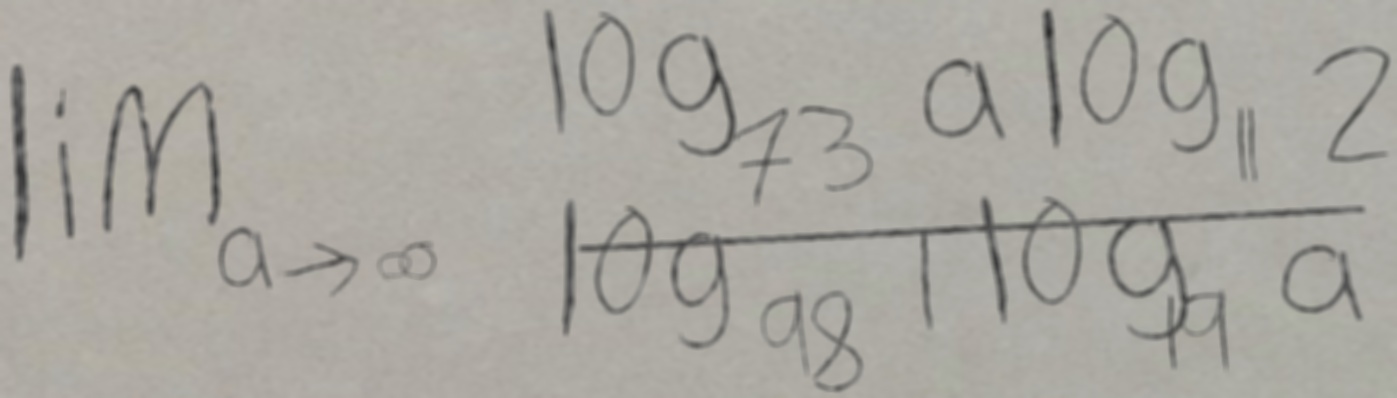 \lim_{a \to \infty} \frac{\log_{73} a \log_{11} 2}{\log_{98} 1 \log_{79} a}